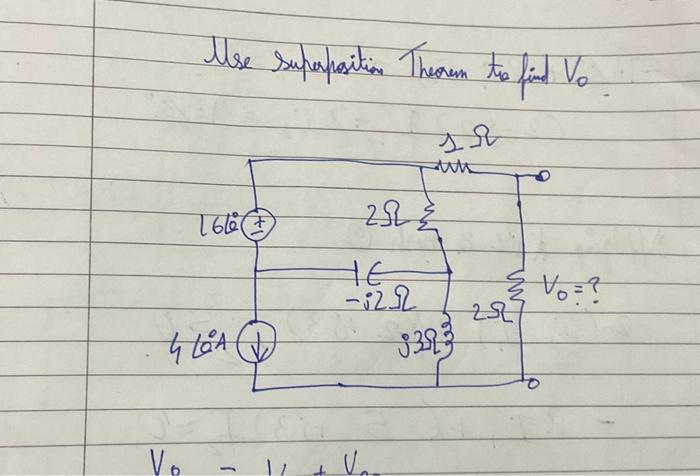 Use superposition Theorem to find V₀
1Ω
16∠0°
±
2Ω
-j2Ω
V₀=?
2Ω
4∠0°A
j3Ω